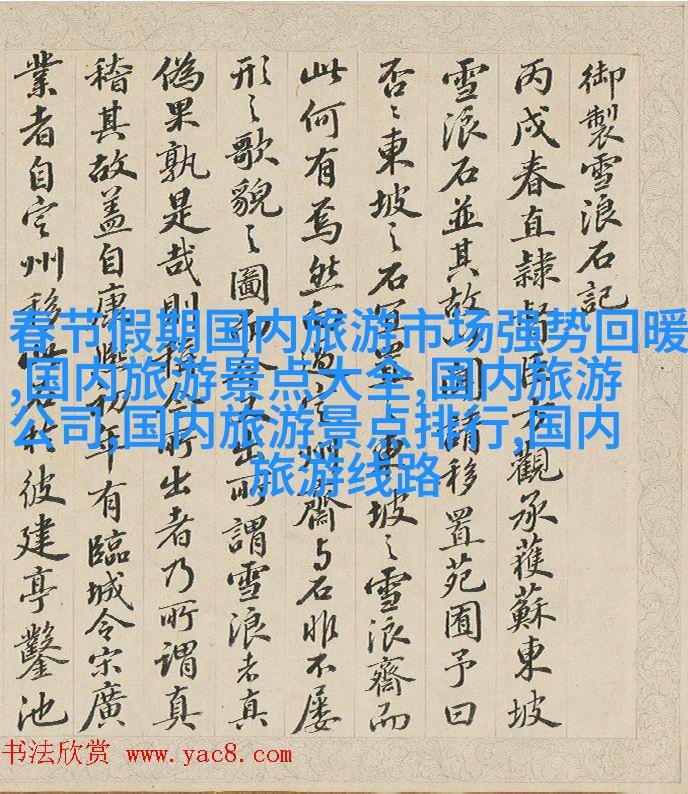 御製雪浪石記
丙戌春直隸督臣方觀承獲蘇東坡
雪浪石並其故圖請移置苑囿予曰
否〻東坡〻石東坡〻雪浪齋而
此何有焉然齋与石昨不屢
形〻歌貌〻圖而出所謂雪浪者真
偽果孰是哉則所出者乃所謂真
稽其故盖自康熙初年有臨城令宋廣
業者自定州移此石於彼建亭鑿池
春节假期国内旅游市场强势回暖
,国内旅游景点大全,国内旅游
公司,国内旅游景点排行,国内
旅游线路
书法欣赏 www.yac8.com